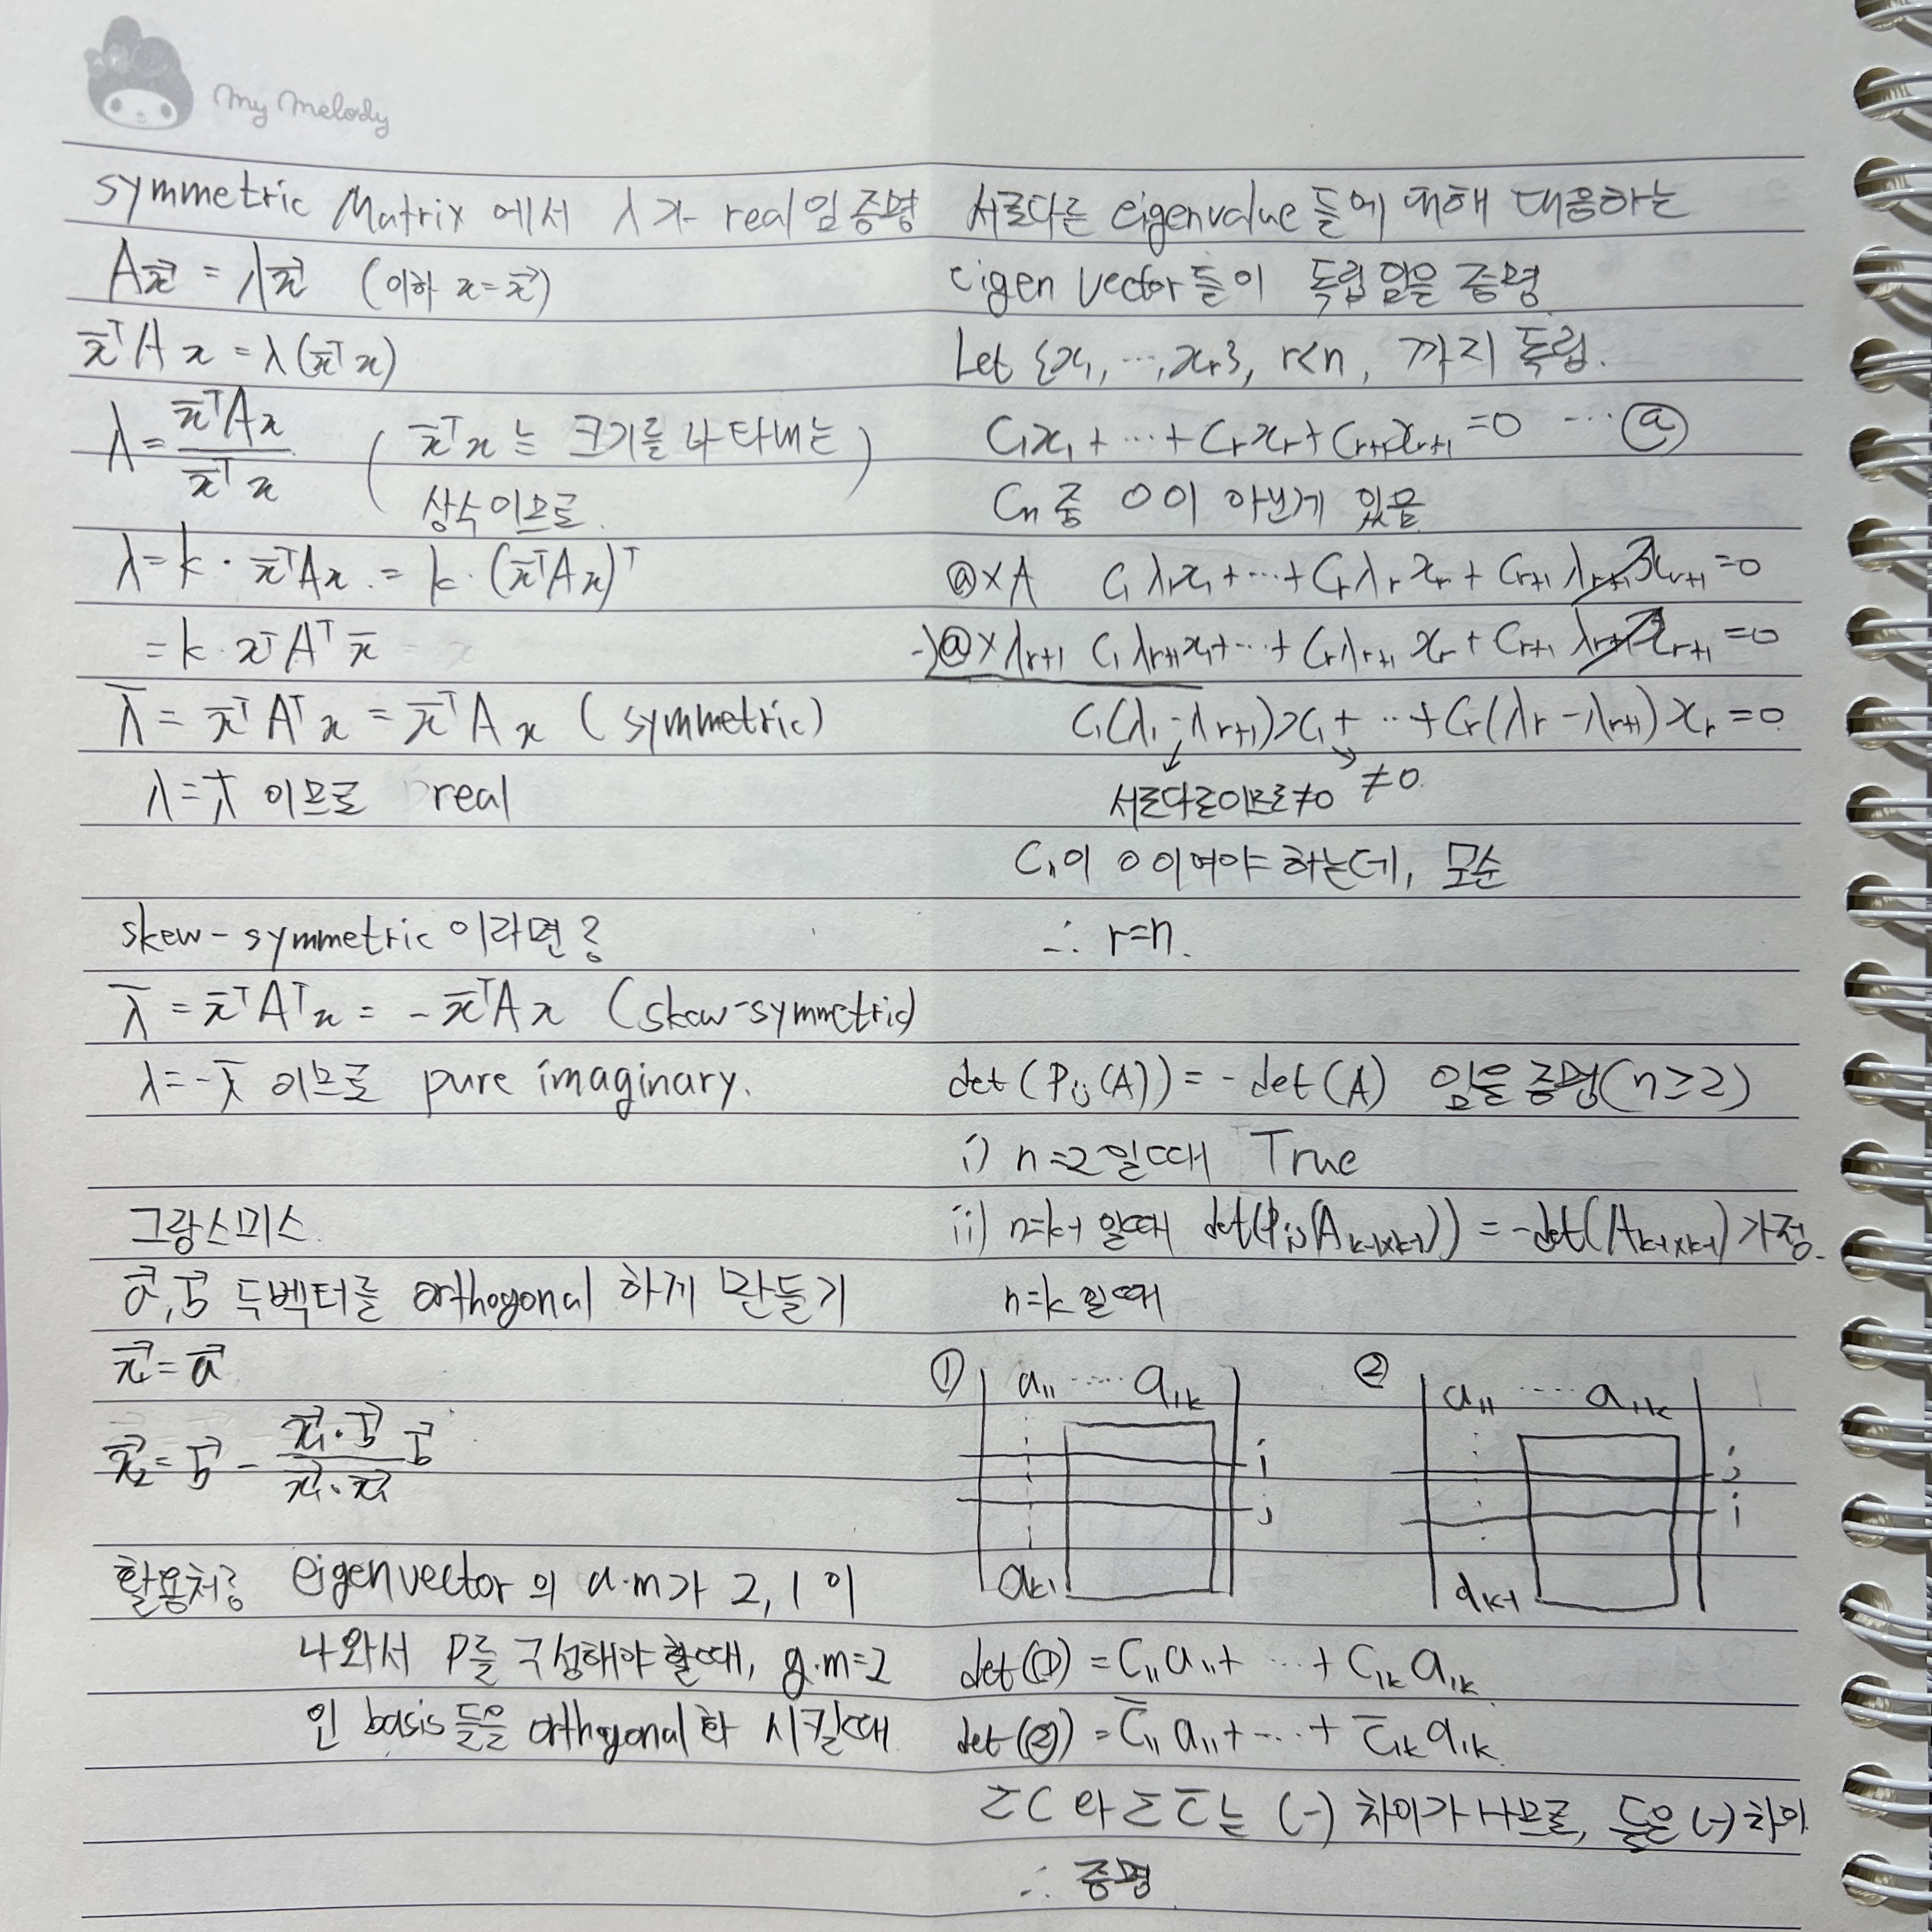 my melody
symmetric Matrix 에서 λ가 real임 증명
Ax⃗ = λx⃗ (이하 x=x⃗)
x̄ᵀAx = λ(x̄ᵀx)
λ = x̄ᵀAx / x̄ᵀx ( x̄ᵀx 는 크기를 나타내는
상수이므로 )
λ = k · x̄ᵀAx = k · (x̄ᵀAx)ᵀ
= k · xᵀAᵀx̄
λ̄ = x̄ᵀAᵀx = x̄ᵀAx (symmetric)
λ = λ̄ 이므로 real
skew-symmetric 이라면?
λ̄ = x̄ᵀAᵀx = -x̄ᵀAx (skew-symmetric)
λ = -λ̄ 이므로 pure imaginary.
그람스미스
a⃗, b⃗ 두벡터를 orthogonal 하게 만들기
x₁⃗ = a⃗
x₂⃗ = b⃗ - (x₁⃗ · b⃗ / x₁⃗ · x₁⃗) b⃗
활용처: eigenvector의 a.m가 2, 1이
나와서 P를 구성해야 할때, g.m=2
인 basis들을 orthogonal화 시킬때
서로다른 eigenvalue 들에 대해 대응하는
eigen vector들이 독립임을 증명
Let {x₁, …, xᵣ}, r<n, 까지 독립.
C₁x₁ + … + Cᵣxᵣ + Cᵣ₊₁xᵣ₊₁ = 0 … ⓐ
Cₙ 중 0이 아닌게 있음
ⓐ×A C₁λ₁x₁ + … + Cᵣλᵣxᵣ + Cᵣ₊₁λᵣ₊₁xᵣ₊₁ = 0
-)ⓐ×λᵣ₊₁ C₁λᵣ₊₁x₁ + … + Cᵣλᵣ₊₁xᵣ + Cᵣ₊₁λᵣ₊₁xᵣ₊₁ = 0
C₁(λ₁ - λᵣ₊₁)x₁ + … + Cᵣ(λᵣ - λᵣ₊₁)xᵣ = 0
서로다름이므로≠0 ≠0
Cₙ이 0이여야 하는데, 모순
∴ r=n.
det(Pᵢⱼ(A)) = -det(A) 임을 증명(n≥2)
i) n=2일때 True
ii) n=k-1 일때 det(Pᵢⱼ(Aₖ₋₁ₓₖ₋₁)) = -det(Aₖ₋₁ₓₖ₋₁) 가정.
n=k 일때
① a₁₁ ⋯ a₁ₖ ② a₁₁ ⋯ a₁ₖ
i j
j i
aₖ₁ aₖ₁
det(①) = C₁₁a₁₁ + … + C₁ₖa₁ₖ
det(②) = C̄₁₁a₁₁ + … + C̄₁ₖa₁ₖ
ΣC 와 ΣC̄는 (-) 차이가 나므로, 둘은 (-) 차이
∴ 증명